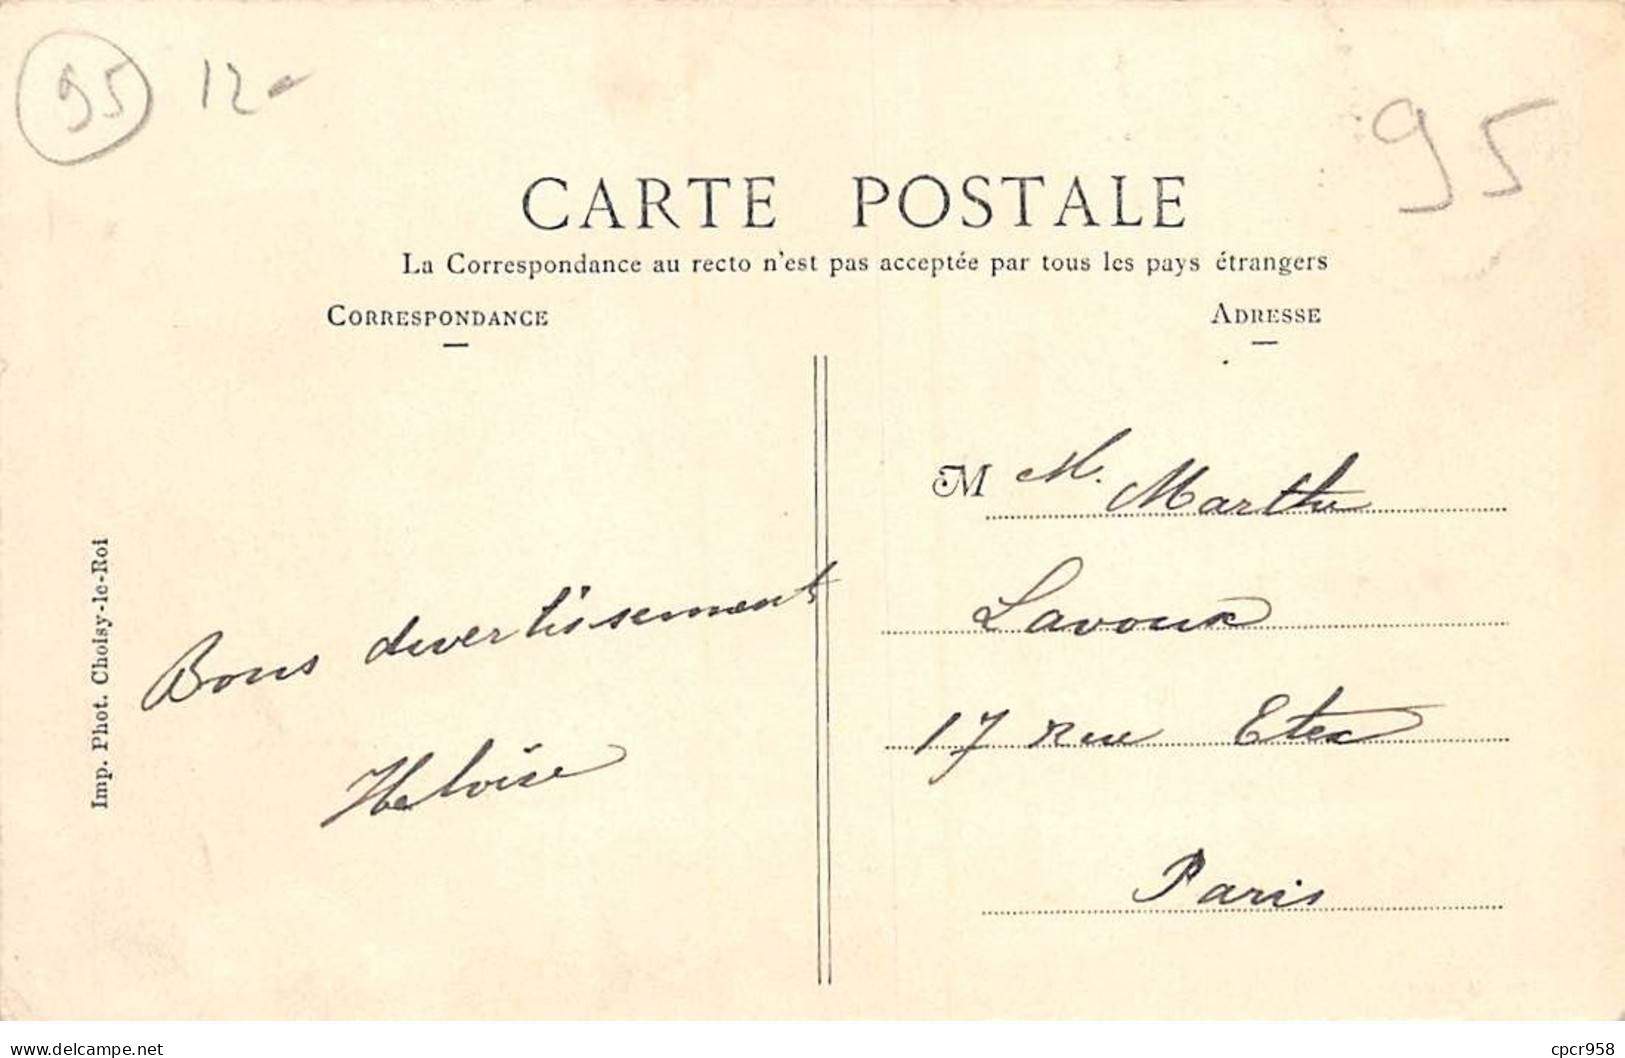 95 12-
95
CARTE POSTALE
La Correspondance au recto n'est pas acceptée par tous les pays étrangers
CORRESPONDANCE
ADRESSE
M M. Marthe
Lavoux
17 Rue Etex
Paris
Bons divertissement
Heloïse
Imp. Phot. Choisy-le-Roi
delcampe.net
cpcr958